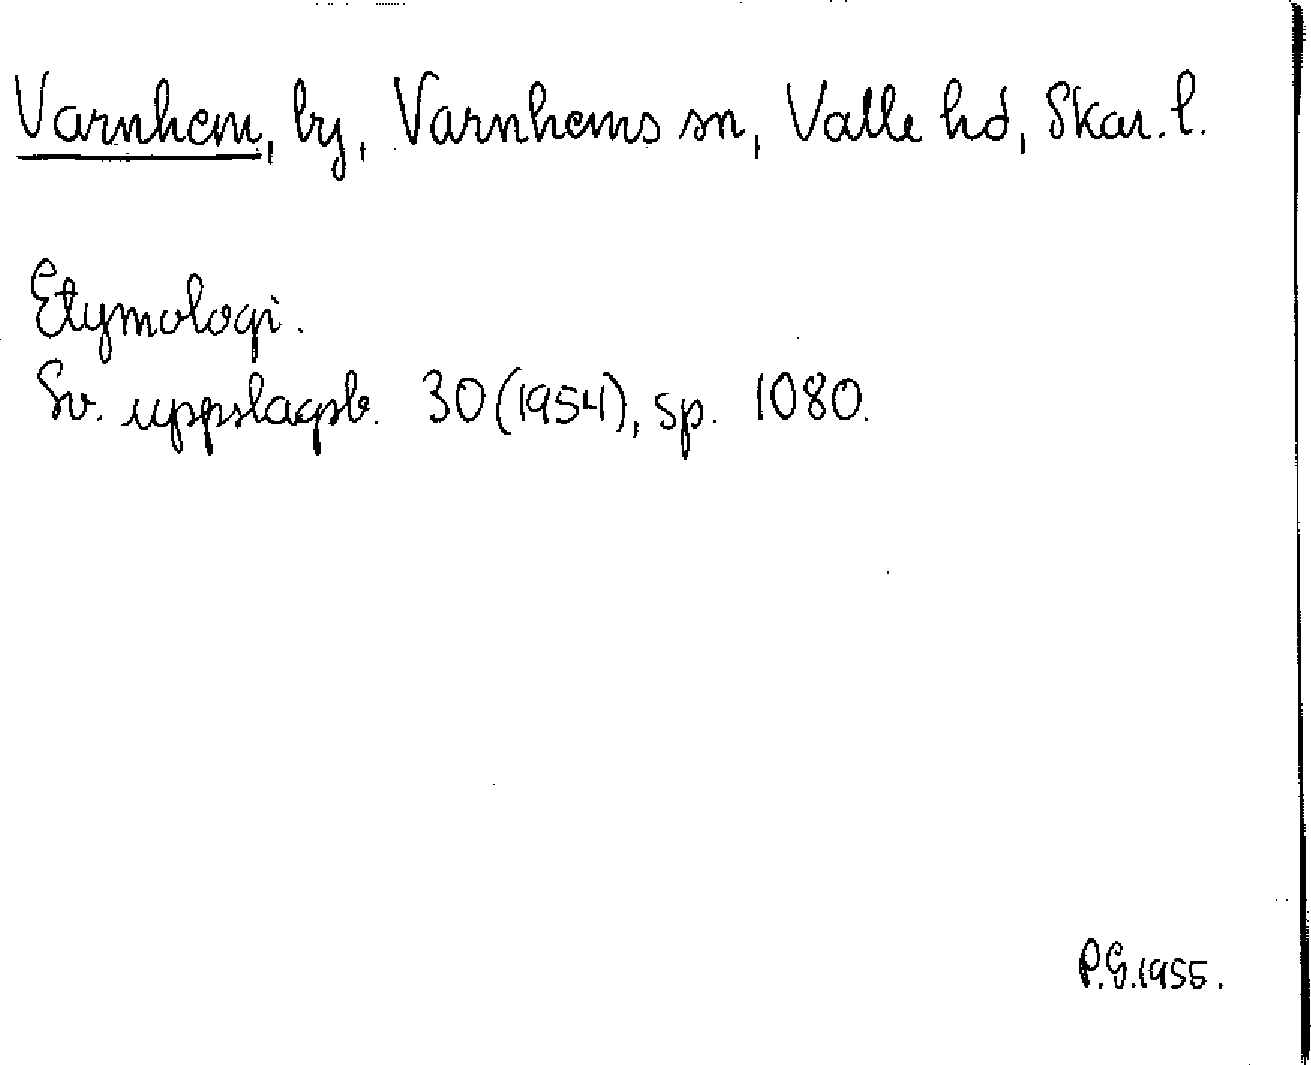 Varnhem, by, Varnhems sn, Valle hd, Skar. l.
Etymologi.
Sv. uppslagsb. 30 (1954), sp. 1080.
P.G. 1955.